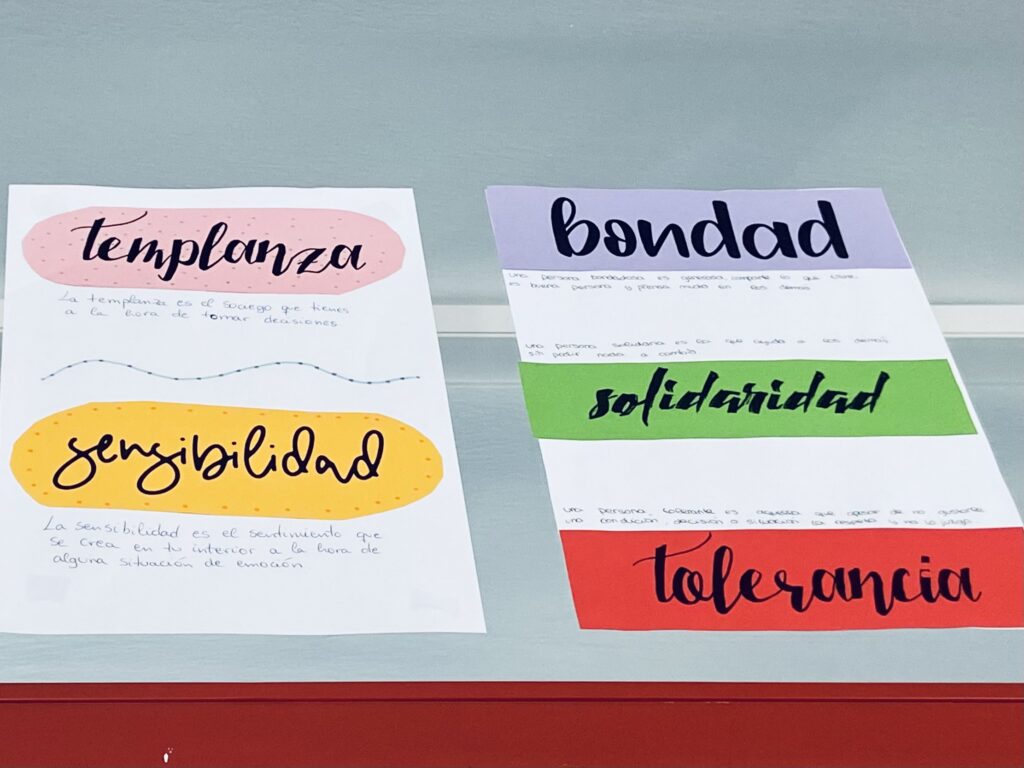 templanza
La templanza es el sociego que tienes
a la hora de tomar decisiones
sensibilidad
La sensibilidad es el sentimiento que
se crea en tu interior a la hora de
alguna situación de emoción.
bondad
una persona bondadosa es generosa, comparte lo que tiene,
es buena persona y piensa mucho en los demás
una persona solidaria es la que ayuda a los demás
sin pedir nada a cambio
solidaridad
una persona tolerante es aquella que apesar de no gustarle
una condición, decisión o situación la respeta y no lo juzga
tolerancia